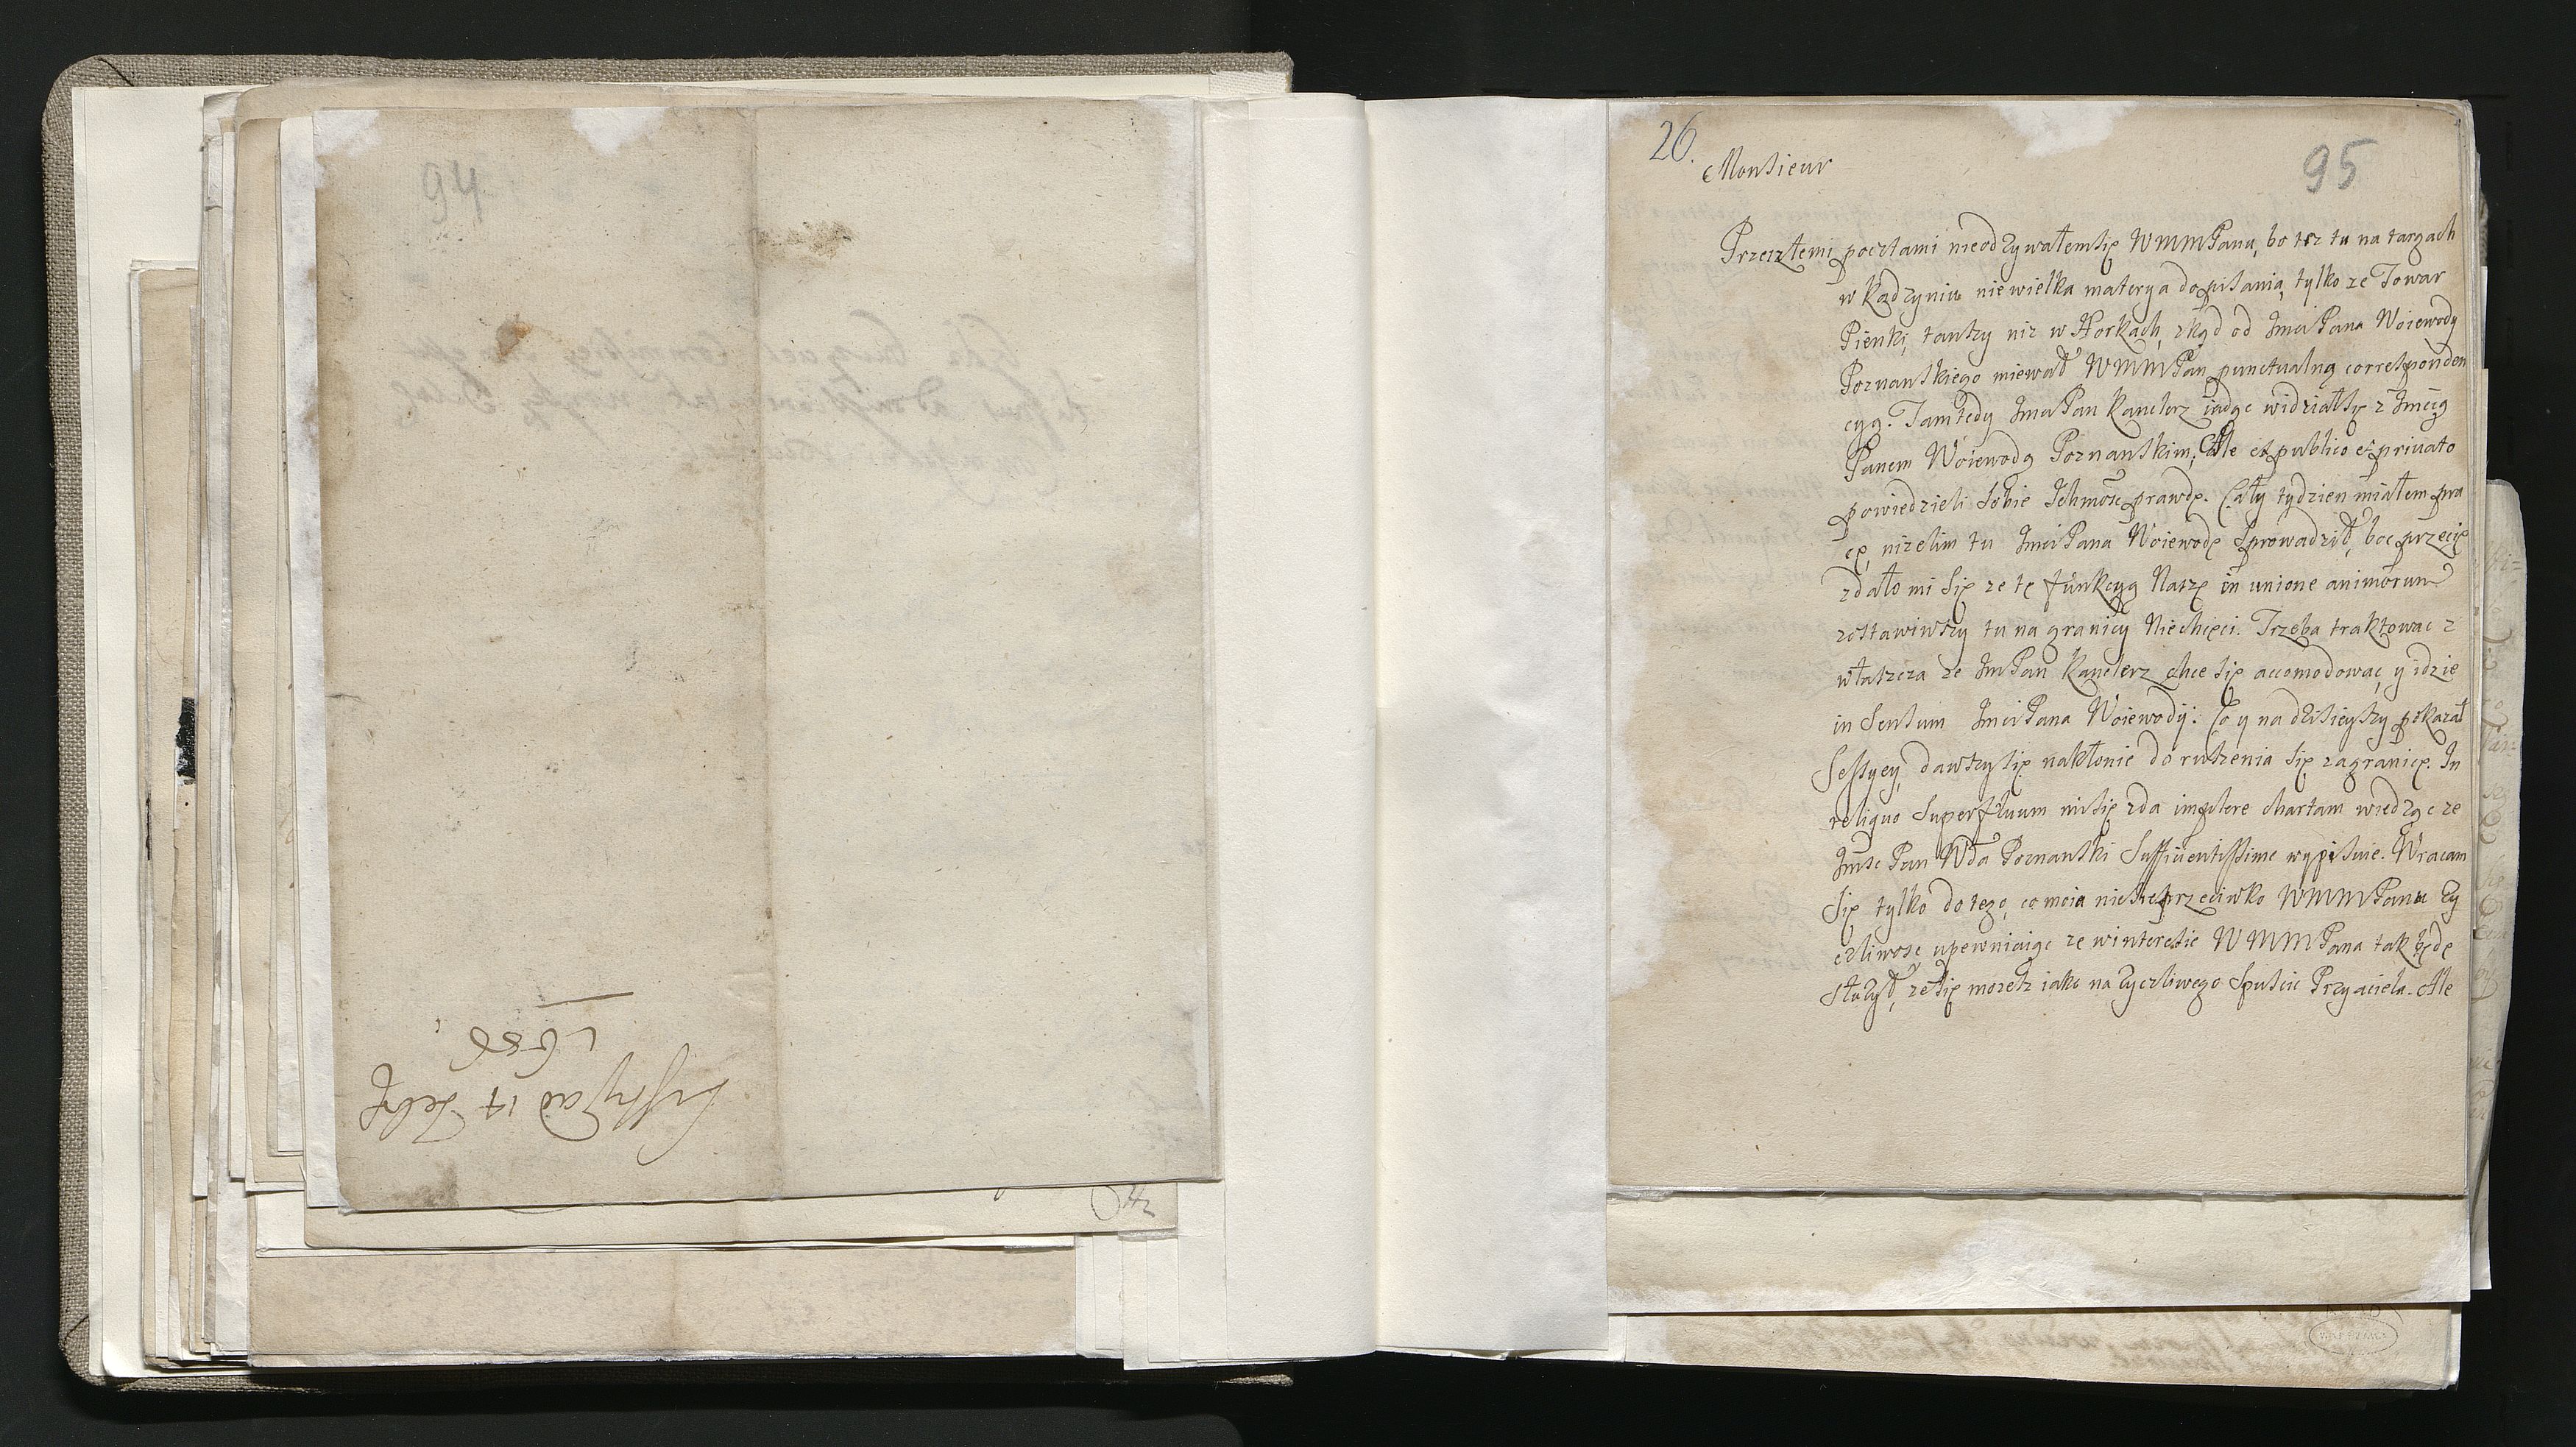 94
Listy ad 14 Febr
1686.
26.
95
Monsieur
Przeszłemi pocztami nieodzywałem się WMMPanu, bo też tu na targach
w Kadzyniu niewielka materya do pisania, tylko ze Towar
Pienki, tanszy niz w Horkach, zkąd od JmciPana Woiewody
Poznanskiego miewał WMMPan punctualną corresponden
cyą. Tam tedy JmciPan Kanclerz iadąc widział się z Jmcią
Panem Woiewodą Poznanskim, Ale et publico et priuato
powiedzieli sobie Ichmośc prawdę. Cały tydzien miałem pra
cę, nizelim tu JmciPana Woiewodę sprowadził, boc przecię
zdało mi się ze tę funkcyą Naszę in unione animorum
zostawiwszy tu na granicy Niechęci. Trzeba traktowac z
właszcza ze JmPan Kanclerz chce się accomodowac, y idzie
in sensum JmciPana Woiewody: Co y na dzisieyszy pokazał
Sessyey, dawszy się nakłonic do ruszenia się zagranicę. In
reliquo superfluum mi się zda implere chartam wiedząc ze
Jmśc Pan Wda Poznanski sufficientissime wypisuie. Wracam
się tylko do tego, co moia niesie przeciwko WMMPana Zy
czliwosc upewniaiąc ze w interesie WMMPana tak będę
słuzył, ze się mozesz iako na zyczliwego spuscic Przyaciela. Ale